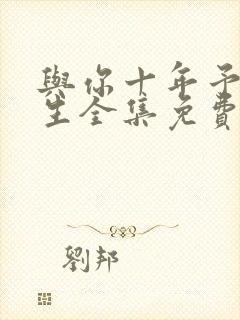 與你十年予
生全集免費
劉邦